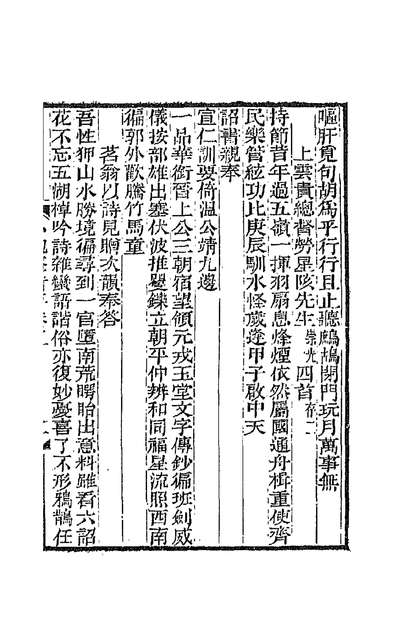 嘔肝覓句胡爲乎行行且止聽鷓鴣閉門玩月萬事無
上雲貴總督勞星陔先生崇光四首存二
持節昔年過五嶺一揮羽扇息烽煙依然屬國通舟楫重使齊
民樂管絃功比庚辰馴水怪歲逢甲子啟中天
詔書親奉
宣仁訓要倚溫公靖九邊
一品華銜晉上公三朝宿望領元戎玉堂文字傳鈔徧班劍威
儀按部雄出塞伏波推矍鑠立朝平仲辨和同福星流照西南
徧郭外歡騰竹馬童
茗翁以詩見贈次韻奉答
吾性狎山水勝境徧尋到一官墮南荒瞎眙出意料雖看六詔
花不忘五湖棹吟詩雜蠻語諧俗亦復妙憂喜了不形鴉鵲任